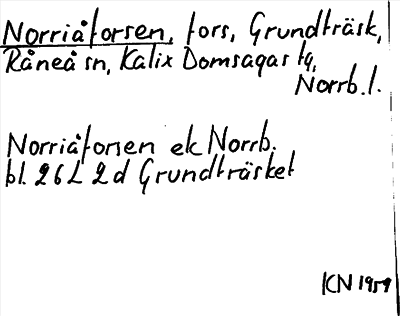 Norriåforsen, fors, Grundträsk,
Råneå sn, Kalix Domsagas tg,
Norrb. l.
Norriåforsen ek Norrb.
bl. 26 L 2 d Grundträsket
KN 1959